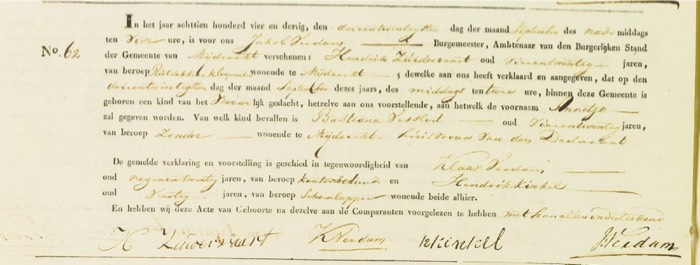 In het jaar achttien honderd vier en dertig, den drieentwintigsten dag der maand September des na middags
No. 62 ten vier ure, is voor ons Jakob Verdam Burgemeester, Ambtenaar van den Burgerlijken Stand
der Gemeente van Mijdrecht verschenen: Hendrik oud jaren,
van beroep wonende te Mijdrecht ; dewelke aan ons heeft verklaard en aangegeven, dat op den
drieentwintigsten dag der maand September dezes jaars, des middags ten twee ure, binnen deze Gemeente is
geboren een kind van het Vrouwelijk geslacht, hetzelve aan ons voorstellende, aan hetwelk de voornaam Annetje
zal gegeven worden. Van welk kind bevallen is Bastiana oud jaren,
van beroep Zonder wonende te Mijdrecht Huisvrouw van den Declarant
De gemelde verklaring en voorstelling is geschied in tegenwoordigheid van Klaas Verdam
oud jaren, van beroep en Hendrik Kinkel
oud Veertig jaren, van beroep Schoenlapper wonende beide alhier.
En hebben wij deze Acte van Geboorte na dezelve aan de Comparanten voorgelezen te hebben met hun allen onderteekend
K Verdam H Kinkel J Verdam